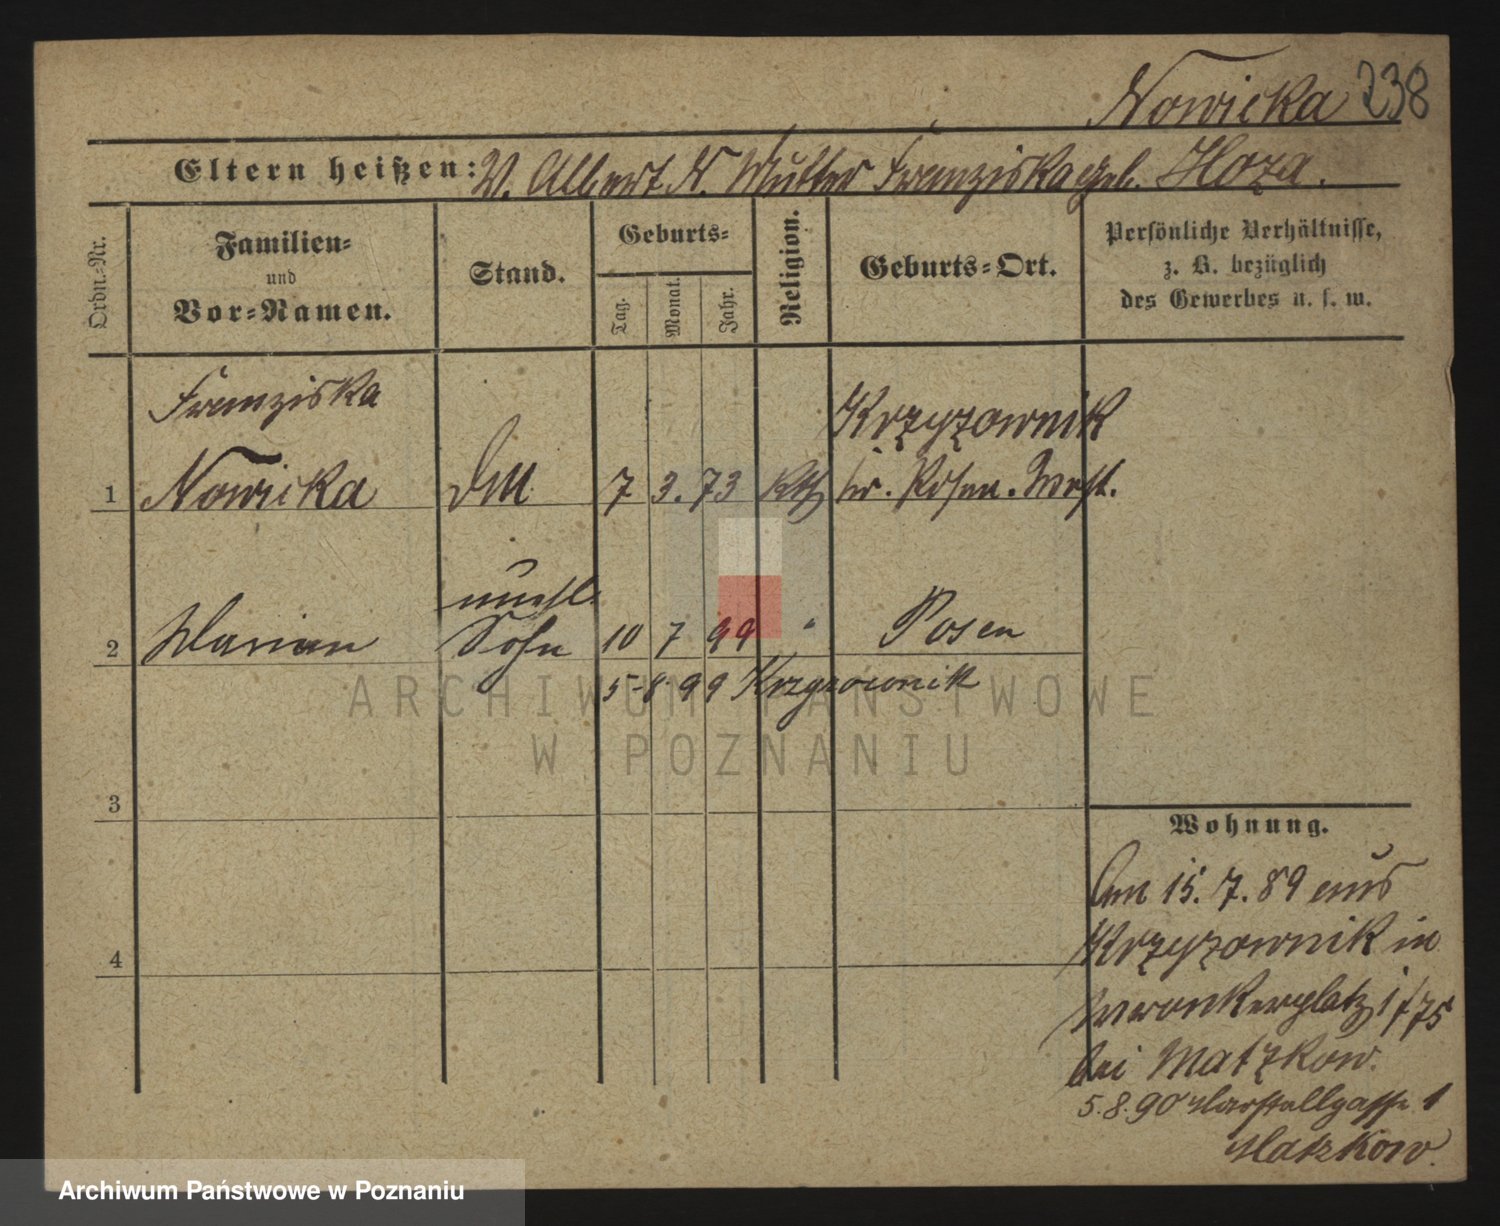 Nowicka 238
Eltern heißen: V. Albert N. Mutter Franziska geb. Hoza.
Ordn.-Nr.
Familien-
und
Vor-Namen.
Stand.
Geburts-
Tag.
Monat.
Jahr.
Religion.
Geburts-Ort.
Persönliche Verhältnisse,
z. B. bezüglich
des Gewerbes u. s. w.
Franziska Krzyzownik
1 Nowicka DM 7 3. 73 Kth Kr. Posen. West.
unehl.
2 Marian Sohn 10 7 99 " Posen
5-8 99 Krzyzownik
ARCHIWUM PAŃSTWOWE
W POZNANIU
3
Wohnung.
Am 15. 7. 89 aus
4
Krzyzownik in
Wronkerplatz 1/75
bei Matzkow.
5.8.90 Marstallgasse 1
Matzkow.
Archiwum Państwowe w Poznaniu